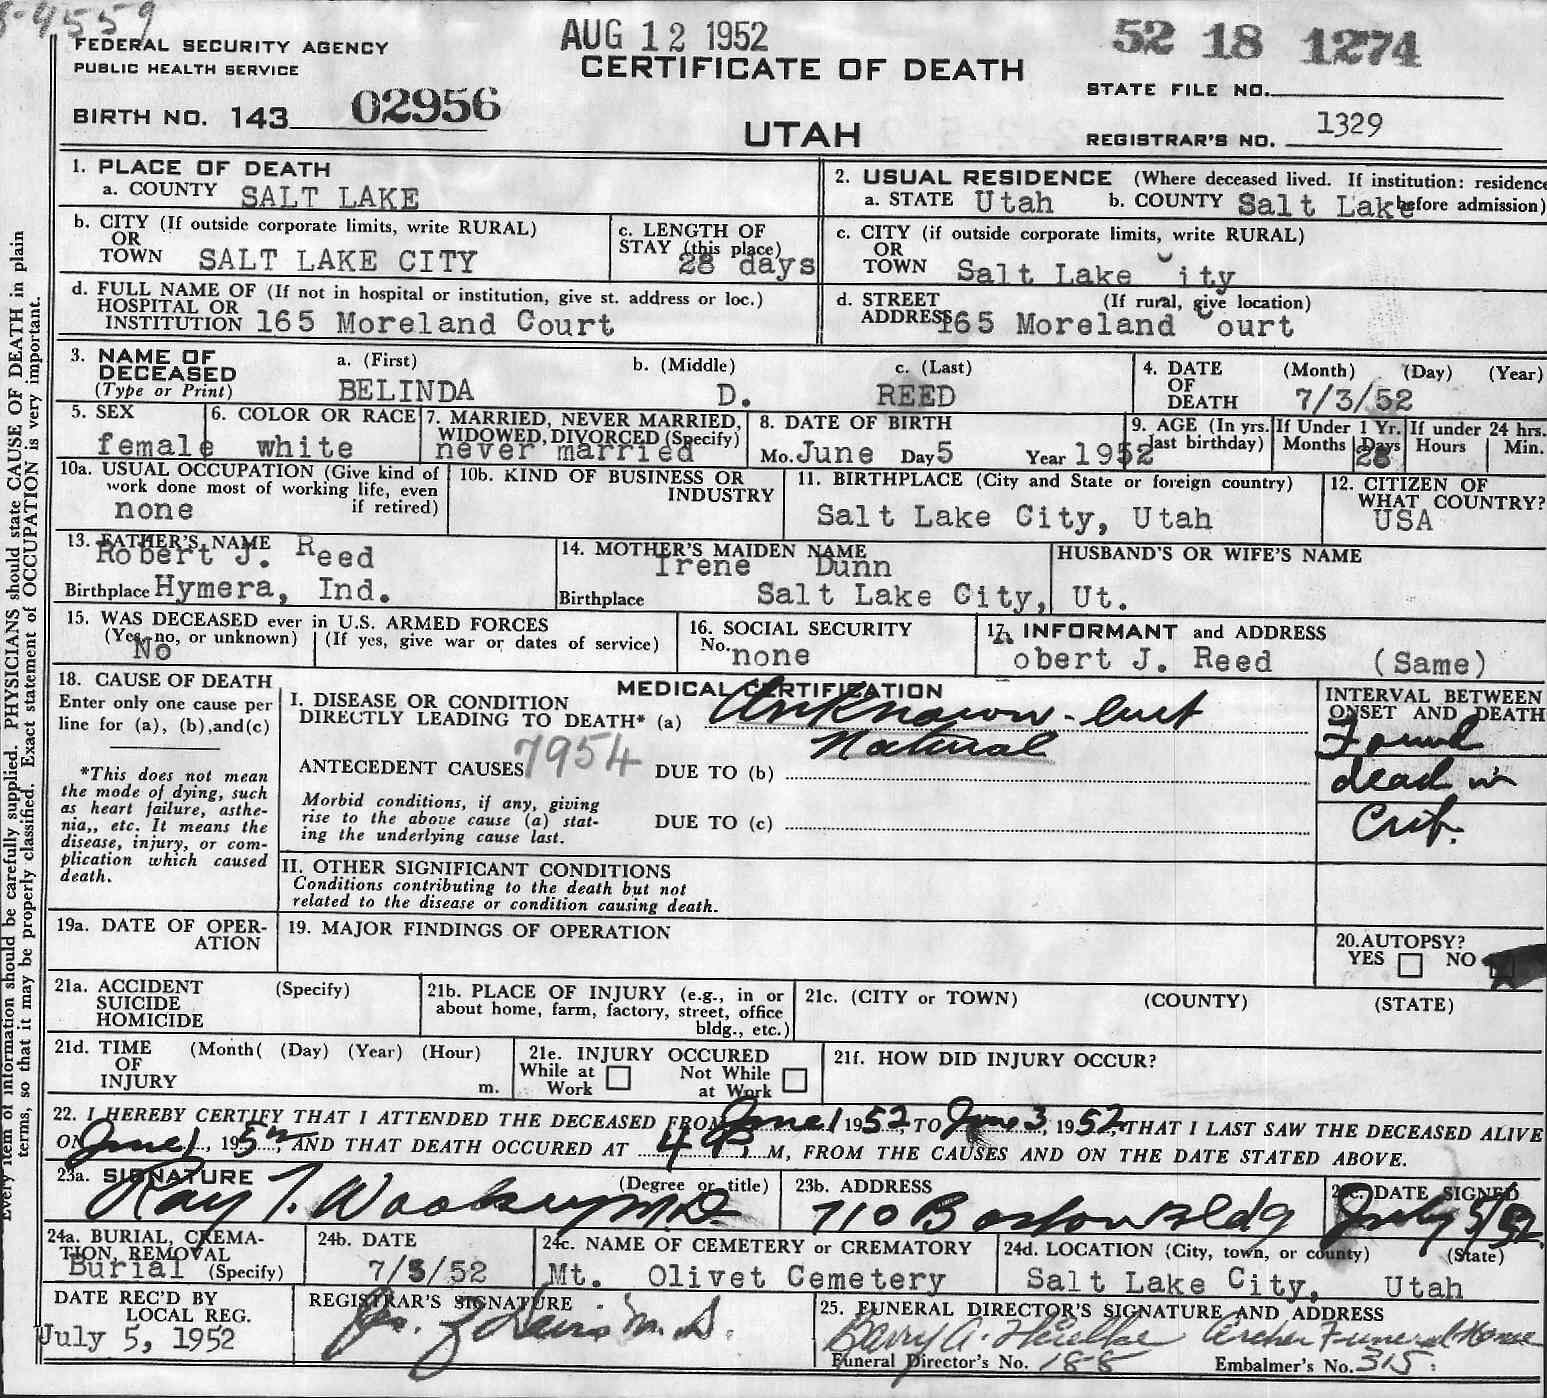 8-4559
FEDERAL SECURITY AGENCY
PUBLIC HEALTH SERVICE
BIRTH NO. 143 02956
AUG 12 1952
CERTIFICATE OF DEATH
UTAH
52 18 1274
STATE FILE NO.
REGISTRAR'S NO. 1329
1. PLACE OF DEATH
a. COUNTY SALT LAKE
2. USUAL RESIDENCE (Where deceased lived. If institution: residence before admission)
a. STATE Utah b. COUNTY Salt Lake
b. CITY (If outside corporate limits, write RURAL)
OR
TOWN SALT LAKE CITY
c. LENGTH OF
STAY (this place)
28 days
c. CITY (if outside corporate limits, write RURAL)
OR
TOWN Salt Lake City
d. FULL NAME OF (If not in hospital or institution, give st. address or loc.)
HOSPITAL OR
INSTITUTION 165 Moreland Court
d. STREET (If rural, give location)
ADDRESS 165 Moreland Court
3. NAME OF
DECEASED
(Type or Print)
a. (First) b. (Middle) c. (Last)
BELINDA D. REED
4. DATE (Month) (Day) (Year)
OF
DEATH 7/3/52
5. SEX
female
6. COLOR OR RACE
white
7. MARRIED, NEVER MARRIED,
WIDOWED, DIVORCED (Specify)
never married
8. DATE OF BIRTH
Mo. June Day 5 Year 1952
9. AGE (In yrs. last birthday)
If Under 1 Yr.
Months Days
28
If under 24 hrs.
Hours Min.
10a. USUAL OCCUPATION (Give kind of
work done most of working life, even
if retired)
none
10b. KIND OF BUSINESS OR
INDUSTRY
11. BIRTHPLACE (City and State or foreign country)
Salt Lake City, Utah
12. CITIZEN OF
WHAT COUNTRY?
USA
13. FATHER'S NAME
Robert J. Reed
Birthplace Hymera, Ind.
14. MOTHER'S MAIDEN NAME
Irene Dunn
Birthplace Salt Lake City, Ut.
HUSBAND'S OR WIFE'S NAME
15. WAS DECEASED ever in U.S. ARMED FORCES
(Yes, no, or unknown) (If yes, give war or dates of service)
No
16. SOCIAL SECURITY
No. none
17. INFORMANT and ADDRESS
obert J. Reed (Same)
18. CAUSE OF DEATH
Enter only one cause per
line for (a), (b), and (c)
*This does not mean
the mode of dying, such
as heart failure, asthe-
nia,, etc. It means the
disease, injury, or com-
plication which caused
death.
MEDICAL CERTIFICATION
I. DISEASE OR CONDITION
DIRECTLY LEADING TO DEATH* (a) Unknown - but
Natural
ANTECEDENT CAUSES 7954 DUE TO (b)
Morbid conditions, if any, giving
rise to the above cause (a) stat-
ing the underlying cause last.
DUE TO (c)
II. OTHER SIGNIFICANT CONDITIONS
Conditions contributing to the death but not
related to the disease or condition causing death.
INTERVAL BETWEEN
ONSET AND DEATH
Found
dead in
Crib.
19a. DATE OF OPER-
ATION
19. MAJOR FINDINGS OF OPERATION
20. AUTOPSY?
YES NO
21a. ACCIDENT (Specify)
SUICIDE
HOMICIDE
21b. PLACE OF INJURY (e.g., in or
about home, farm, factory, street, office
bldg., etc.)
21c. (CITY or TOWN) (COUNTY) (STATE)
21d. TIME (Month( (Day) (Year) (Hour)
OF
INJURY m.
21e. INJURY OCCURED
While at Work Not While at Work
21f. HOW DID INJURY OCCUR?
22. I HEREBY CERTIFY THAT I ATTENDED THE DECEASED FROM June 1 1952, TO June 3, 1952, THAT I LAST SAW THE DECEASED ALIVE
ON June 1, 195, AND THAT DEATH OCCURED AT 4 P. M, FROM THE CAUSES AND ON THE DATE STATED ABOVE.
23a. SIGNATURE (Degree or title)
Ray T. Woolsey M.D.
23b. ADDRESS
710 Boston Bldg
23c. DATE SIGNED
July 5/52
24a. BURIAL, CREMA-
TION, REMOVAL
(Specify)
Burial
24b. DATE
7/5/52
24c. NAME OF CEMETERY or CREMATORY
Mt. Olivet Cemetery
24d. LOCATION (City, town, or county) (State)
Salt Lake City, Utah
DATE REC'D BY
LOCAL REG.
July 5, 1952
REGISTRAR'S SIGNATURE
M. D.
25. FUNERAL DIRECTOR'S SIGNATURE AND ADDRESS
Archer Funeral Home
Funeral Director's No. 188 Embalmer's No. 315
Every item of information should be carefully supplied. PHYSICIANS should state CAUSE OF DEATH in plain
terms, so that it may be properly classified. Exact statement of OCCUPATION is very important.